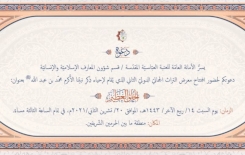 دعوة
يسرّ الأمانة العامة للعتبة العباسية المقدسة / قسم شؤون المعارف الإسلامية والإنسانية
دعوتكم لحضور افتتاح معرض التراث الحلي الدولي الثاني الذي يُقام لإحياء ذكر نبيّنا الأكرم محمد بن عبد الله ﷺ بعنوان:
الزمان: يوم السبت ١٤ / ربيع الآخر / ١٤٤٣هـ، الموافق ٢٠ / تشرين الثاني / ٢٠٢١م، في تمام الساعة الثالثة مساءً.
المكان: منطقة ما بين الحرمين الشريفين.